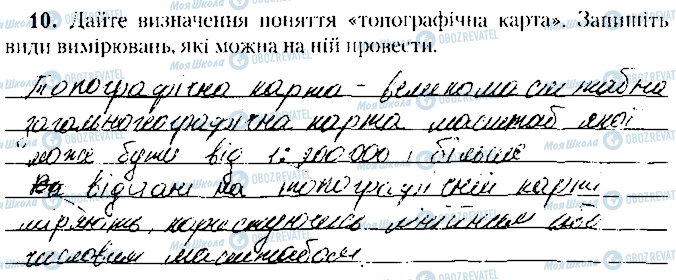 10. Дайте визначення поняття «топографічна карта». Запишіть
види вимірювань, які можна на ній провести.
Топографічна карта – великомасштабна
загальногеографічна карта масштаб якої
може бути від 1: 200 000 і більше
відстані на топографічній карті
міряють, користуючись лінійним або
числовим масштабом